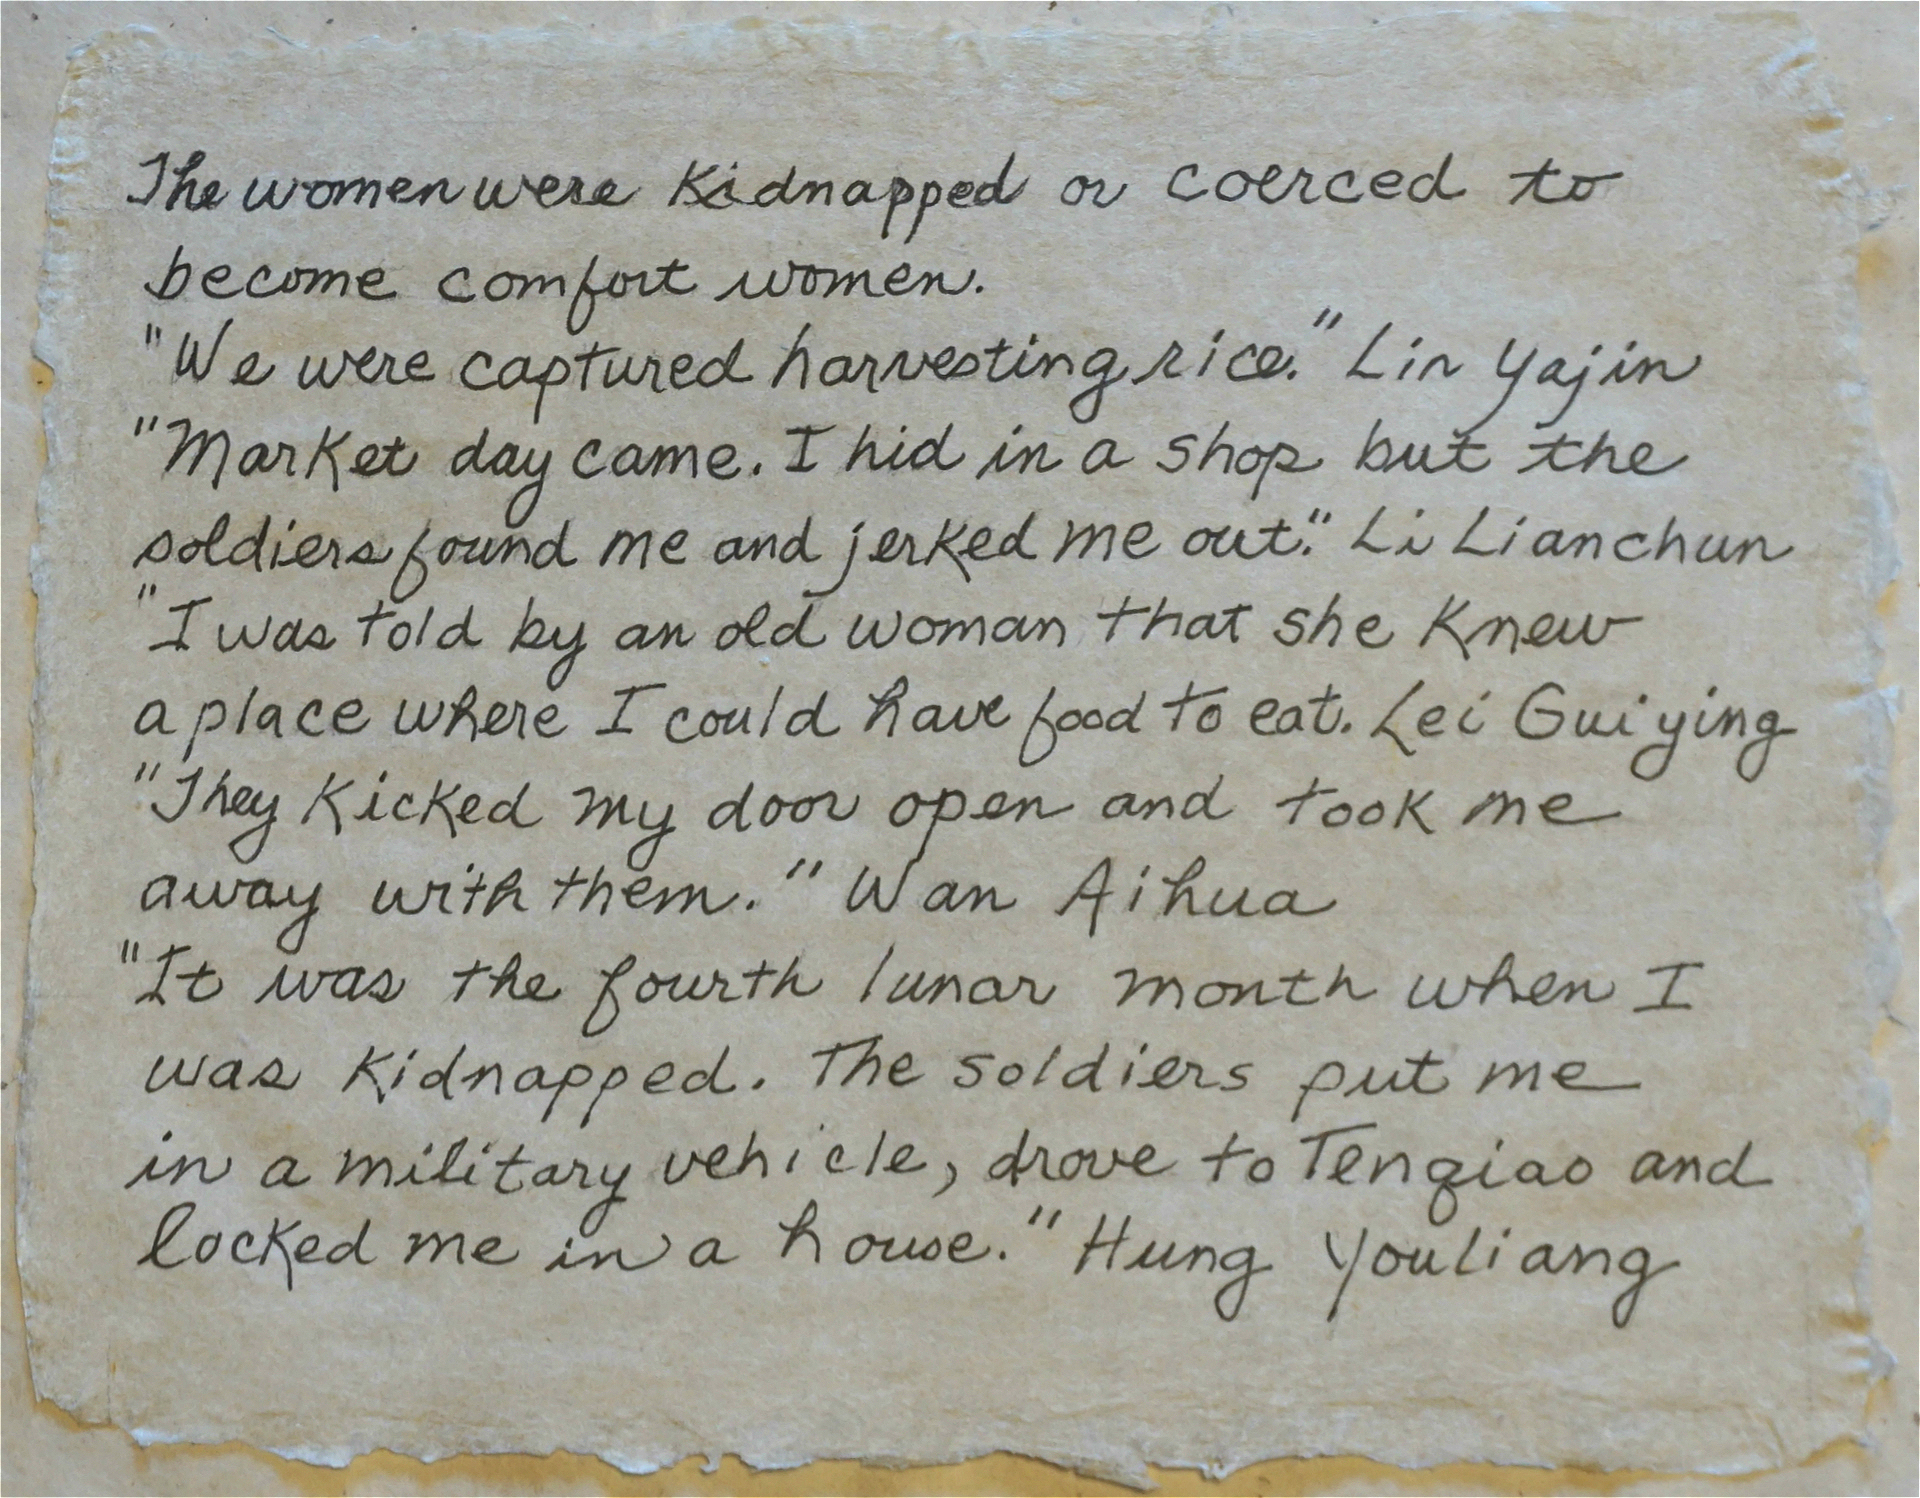 The women were Kidnapped or coerced to
become comfort women.
"We were captured harvesting rice." Lin Yajin
"Market day came. I hid in a shop but the
soldiers found me and jerked me out." Li Lianchun
"I was told by an old woman that she knew
a place where I could have food to eat. Lei Guiying
"They kicked my door open and took me
away with them." Wan Aihua
"It was the fourth lunar month when I
was kidnapped. The soldiers put me
in a military vehicle, drove to Tenqiao and
locked me in a house." Hung Youliang